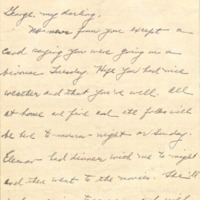 George, my darling,
No news from you except a
card saying you were going on a
bivouac Tuesday. Hope you had nice
weather and that you're well. All
at home are fine and the folks will
be here to-morrow night or Sunday.
Eleanor had dinner with me to-night
and then went to the movies. She'll